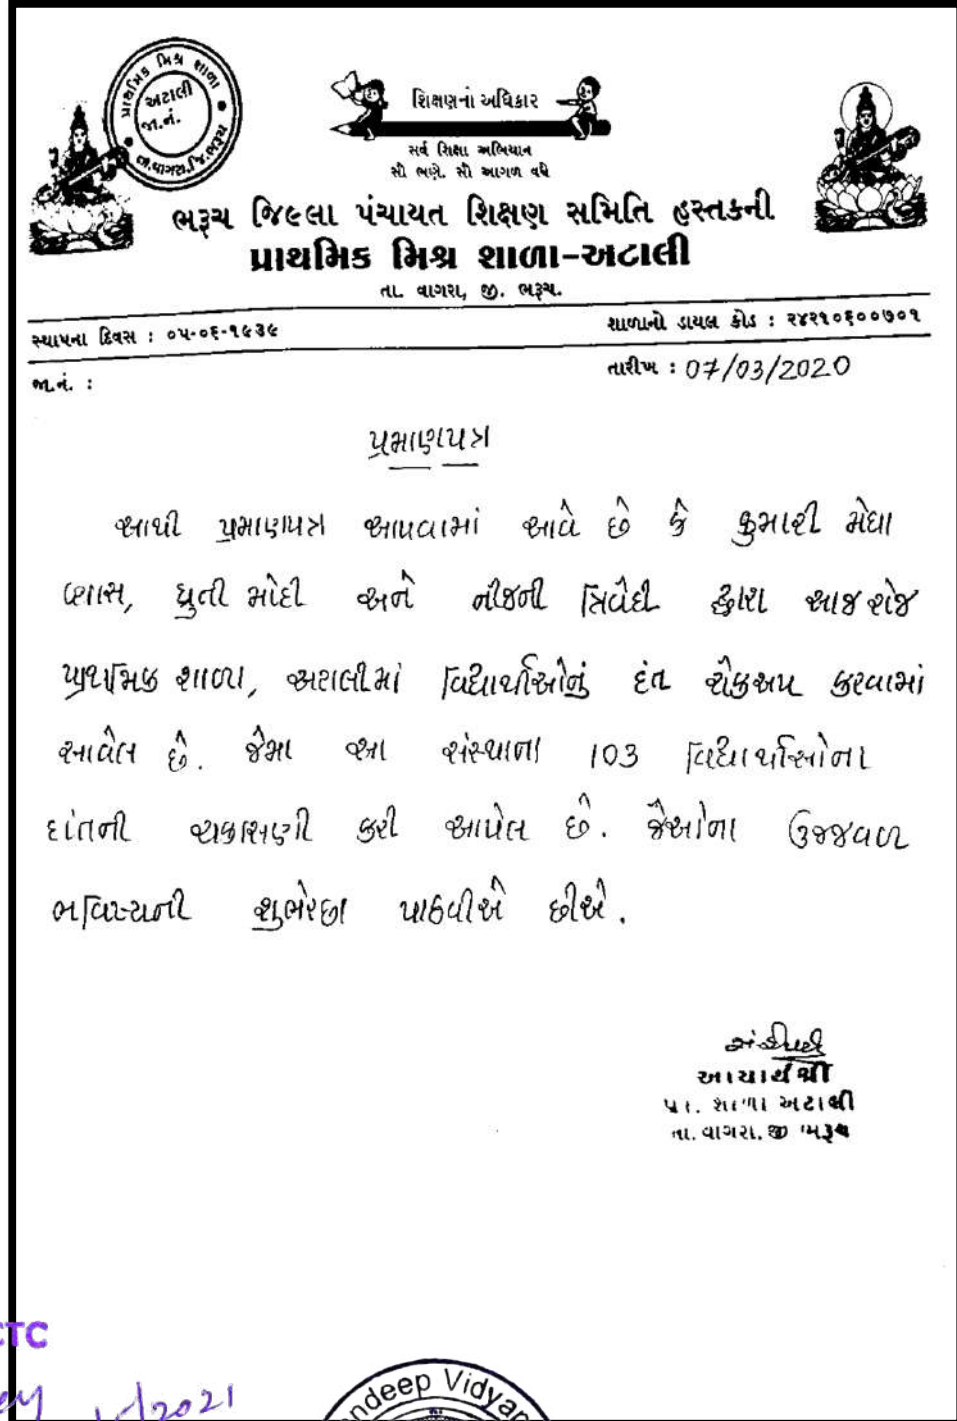 પ્રાથમિક મિશ્ર શાળા
અટાલી
જા.નં.
તા.વાગરા,જિ.ભરૂચ
શિક્ષણનો અધિકાર
સર્વ શિક્ષા અભિયાન
સૌ ભણે. સૌ આગળ વધે
ભરૂચ જિલ્લા પંચાયત શિક્ષણ સમિતિ હસ્તકની
પ્રાથમિક મિશ્ર શાળા-અટાલી
તા. વાગરા, જી. ભરૂચ.
સ્થાપના દિવસ : ૦૫-૦૬-૧૯૩૯
શાળાનો ડાયલ કોડ : ૨૪૨૧૦૬૦૦૭૦૧
જા.નં. :
તારીખ : 07/03/2020
પ્રમાણપત્ર
આથી પ્રમાણપત્ર આપવામાં આવે છે કે કુમારી મેઘા
વ્યાસ, ધ્રુતી મોદી અને નીજની ત્રિવેદી દ્વારા આજ રોજ
પ્રાથમિક શાળા, અટાલીમાં વિદ્યાર્થીઓનું દંત ચેકઅપ કરવામાં
આવેલ છે. જેમા આ સંસ્થાના 103 વિદ્યાર્થીઓના
દાંતની ચકાસણી કરી આપેલ છે. જેઓના ઉજ્જવળ
ભવિષ્યની શુભેચ્છા પાઠવીએ છીએ.
આચાર્યશ્રી
પ્રા. શાળા અટાલી
તા. વાગરા. જી ભરૂચ
CTC
2021
ndeep Vidya